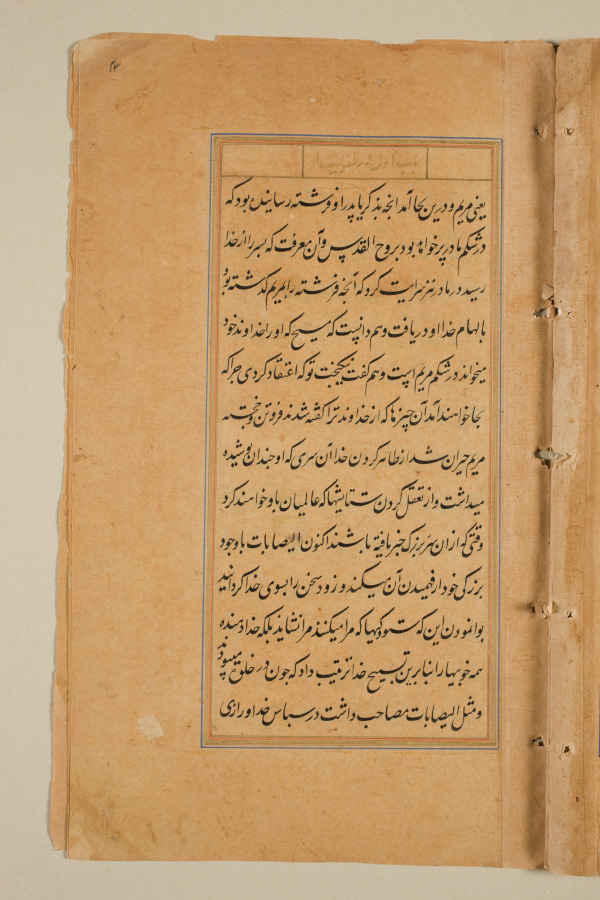 ۴۳
باب اول در
یعنی مریم و درین جا آمد انجه بذکریا پدر او فرشته رسانیده بود که
در شکم مادر پر خواهد بود بروح القدس و آن معرفت که پسر را از خدا
رسید در مادر نیز سرایت کرد که آنجه فرشته را بمریم گذشته بود
بالهام خدا او دریافت و هم دانست که مسیح که او را خداوند خود
میخواند در شکم مریم است و هم کفت نیکبخت تو که اعتقاد کردی جرا که
بجا خواهند آمد آن چیزها که از خداوند ترا کفته شدند فروتن و خجسته
مریم حیران شد از ظاهر کردن خدا آن سری که او جندان پوشیده
میداشت و از تعقل کردن ستایشها که عالمیان باو خواهند کرد
وقتی که ازان سر بزرک خبر یافته باشند اکنون الیصابات با وجود
بزرکی خود از فهمیدن آن میکند و زود سخن را بسوی خدا کردانید
بوانمودن این که ستودکیها که مرا میکنند مرا نشاید بلکه خدا دهنده
همه خوبیها را بنابرین تسبیح خدا ترتیب داد که جون در خلوع میبود
و مثل الیصابات مصاحب داشت در سپاس خدا و رازی